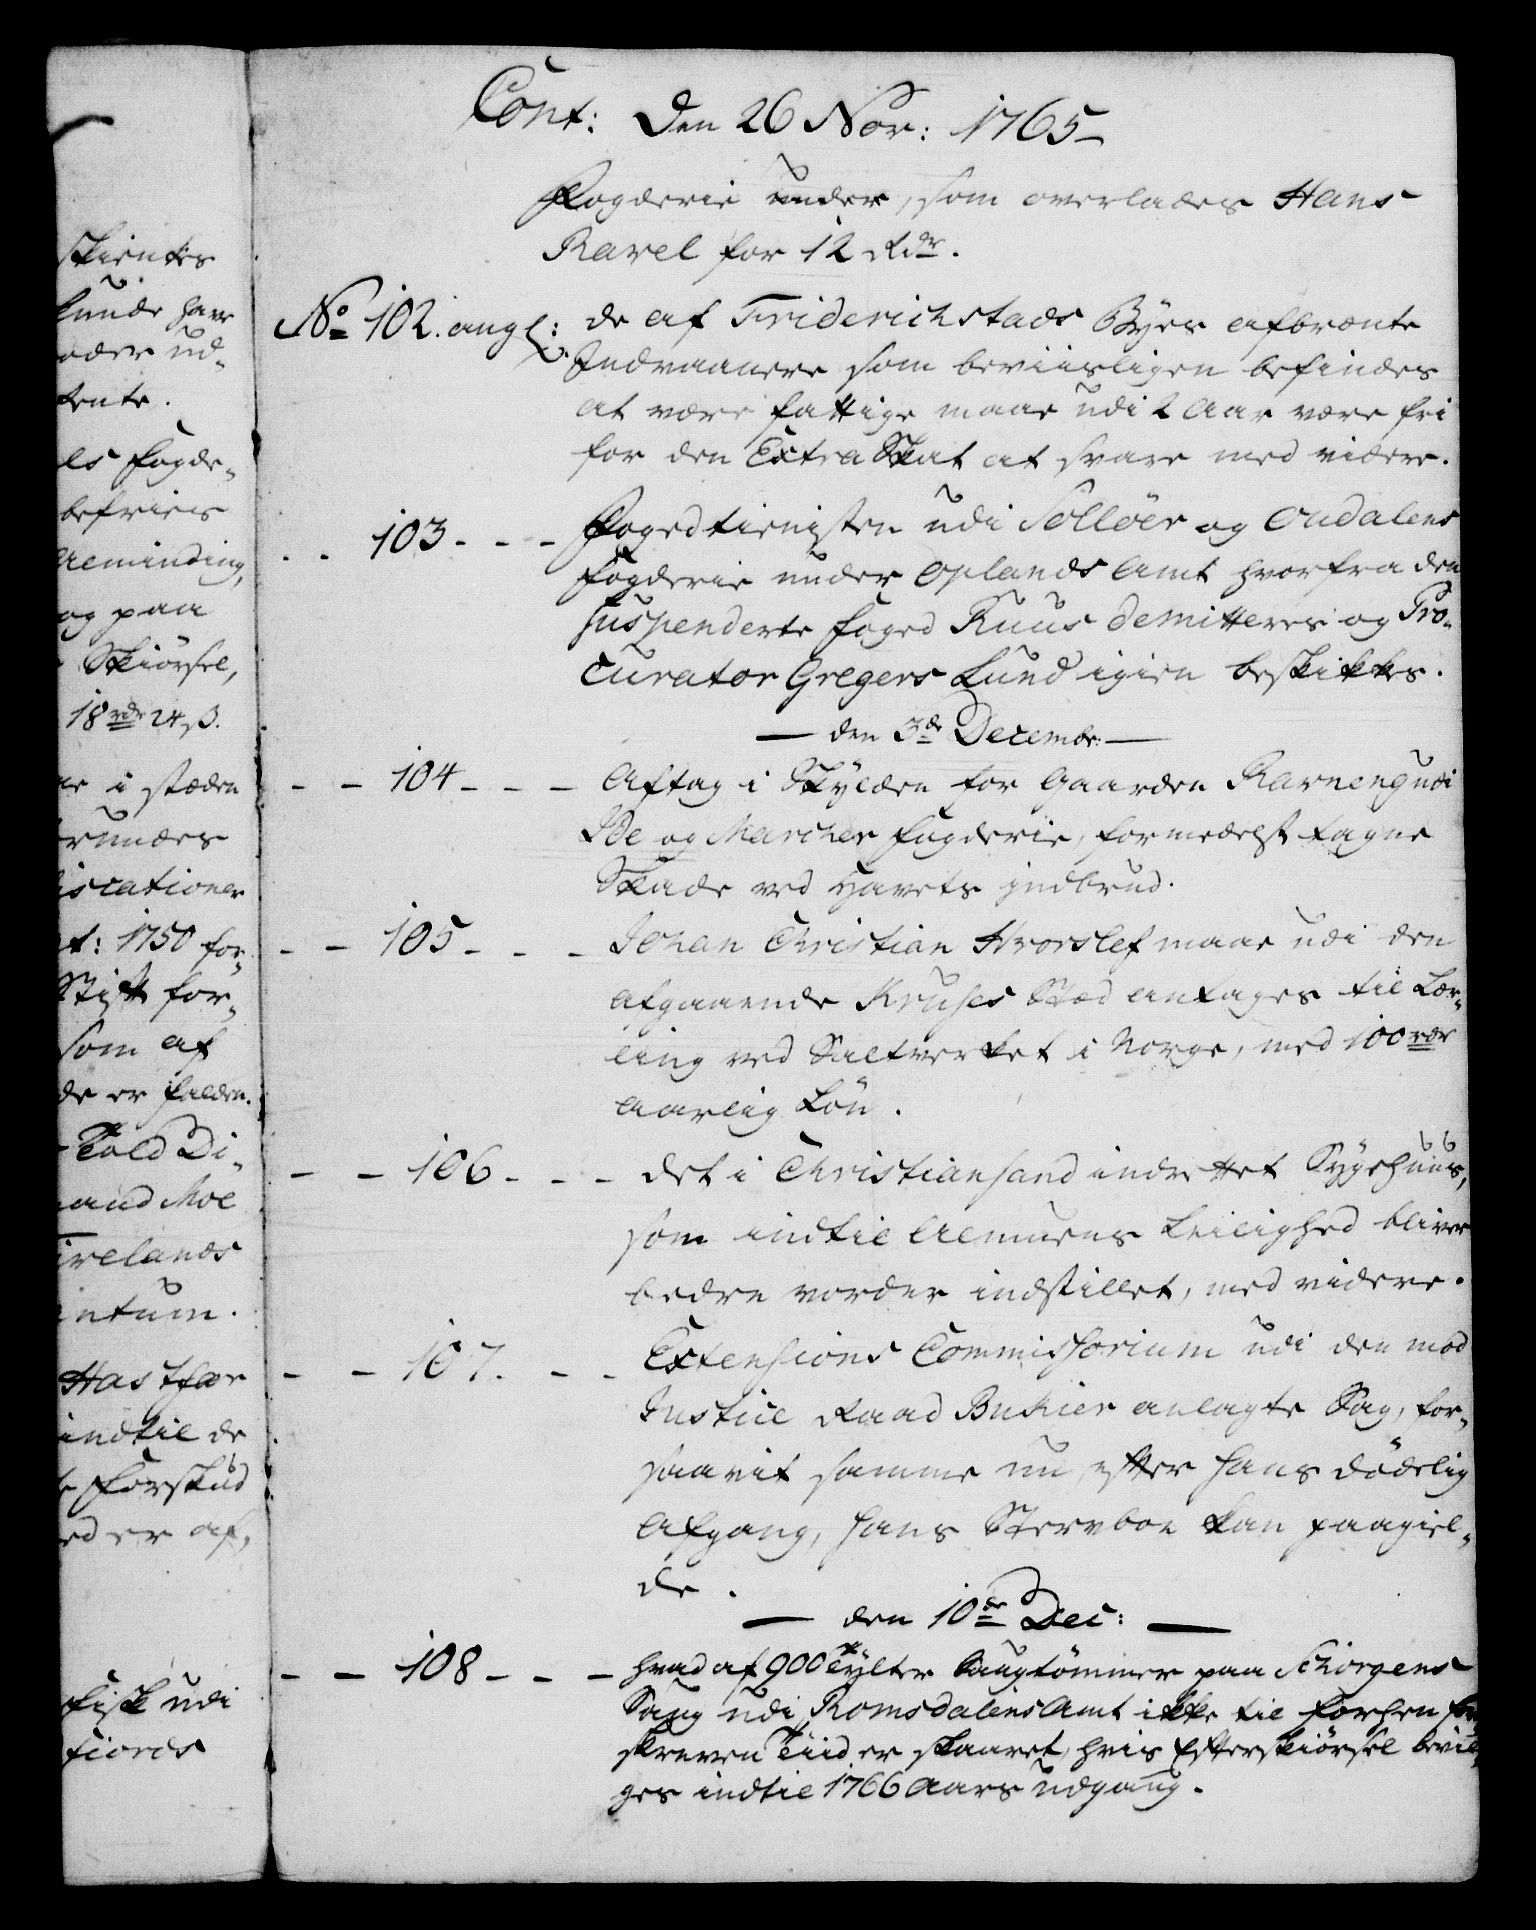 Cont: Den 26 Nov: 1765
Fogderie under, som overlades Hans
Ravel for 12 Rdr.
No 102. angl: de af Friderichstads Byes afbrænte
Indvaanere som beviisligen befindes
at være fattige maae udi 2 Aar være fri
for den Extra Skat at svare med videre.
- - 103 - - - Fogedtienisten udi Solløer og Oudalens
Fogderie under Oplands Amt hvorfra den
suspenderte Foged Ruus demitteres og Pro-
curator Gregers Lund igien beskikkes.
— den 3de Decembr: —
- - 104 - - - Aftag i Skylden for Gaarden Ravneng udi
Ide og Marcher Fogderie, formedelst tagne
Skade ved Havets indbrud.
- - 105 - - - Johan Christian Hvorslef maae udi den
afgaaende Kruses Stæd antages til Lær-
ling ved Saltverket i Norge, med 100 rdr
aarlig Løn.
- - 106 - - - det i Christiansand indrettet Sygehuus,
som indtil Almuens Leilighed bliver
bedre vorder indstillet, med videre.
- - 107. - - Extensions Commissorium udi den mod
Justice Raad Bukier anlagte Sag, for-
saavit samme nu efter hans dødelig
Afgang, hans Stervboe kan paagiel-
de.
— den 10de Dec: —
- - 108 - - - hvad af 900 Tylter Saugtømmer paa Schorgens
Saug udi Romsdalens Amt ikke til forhen for
skreven Tiid er skaaret, hvis Efterskiørsel bevil
ges indtil 1766 Aars udgang.
skientes
kunde have
oder ud-
tente.
es Fogde-
befries
Alminding,
og paa
Skiørsel,
18 rdr 24 ß.
ar i stæden
runder
iscationer
t: 1750 for-
Stift for-
som af
de er falden.
Told Di-
and Moe
irelands
intum.
Hastfær
indtil de
Forskud
ed er af,
Fisk udi
Fiords